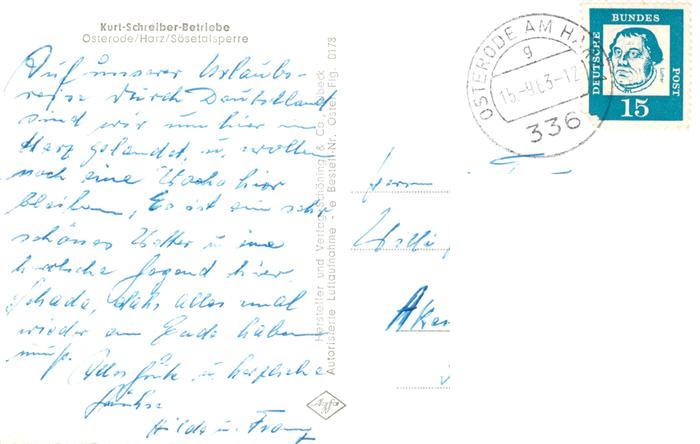 Kurt-Schreiber-Betriebe
Osterode/Harz/Sösetalsperre
Auf unserer Urlaubs-
reise durch Deutschland
sind wir nun hier im
Harz gelandet, u. wollen
noch eine Woche hier
bleiben, Es ist ein sehr
schönes Wetter u. eine
herrliche Gegend hier.
Schade, daß alles mal
wieder ein Ende haben
muß.
Alles Gute u. herzliche
Grüße
Hilde u. Franz
Hersteller und Verlag Schöning & Co., Lübeck
Autorisierte Luftaufnahme Bestell-Nr. Oster Fig. 0178
Agfa
OSTERODE AM HARZ
g
336
DEUTSCHE
BUNDES
POST
Luther
15
Herrn